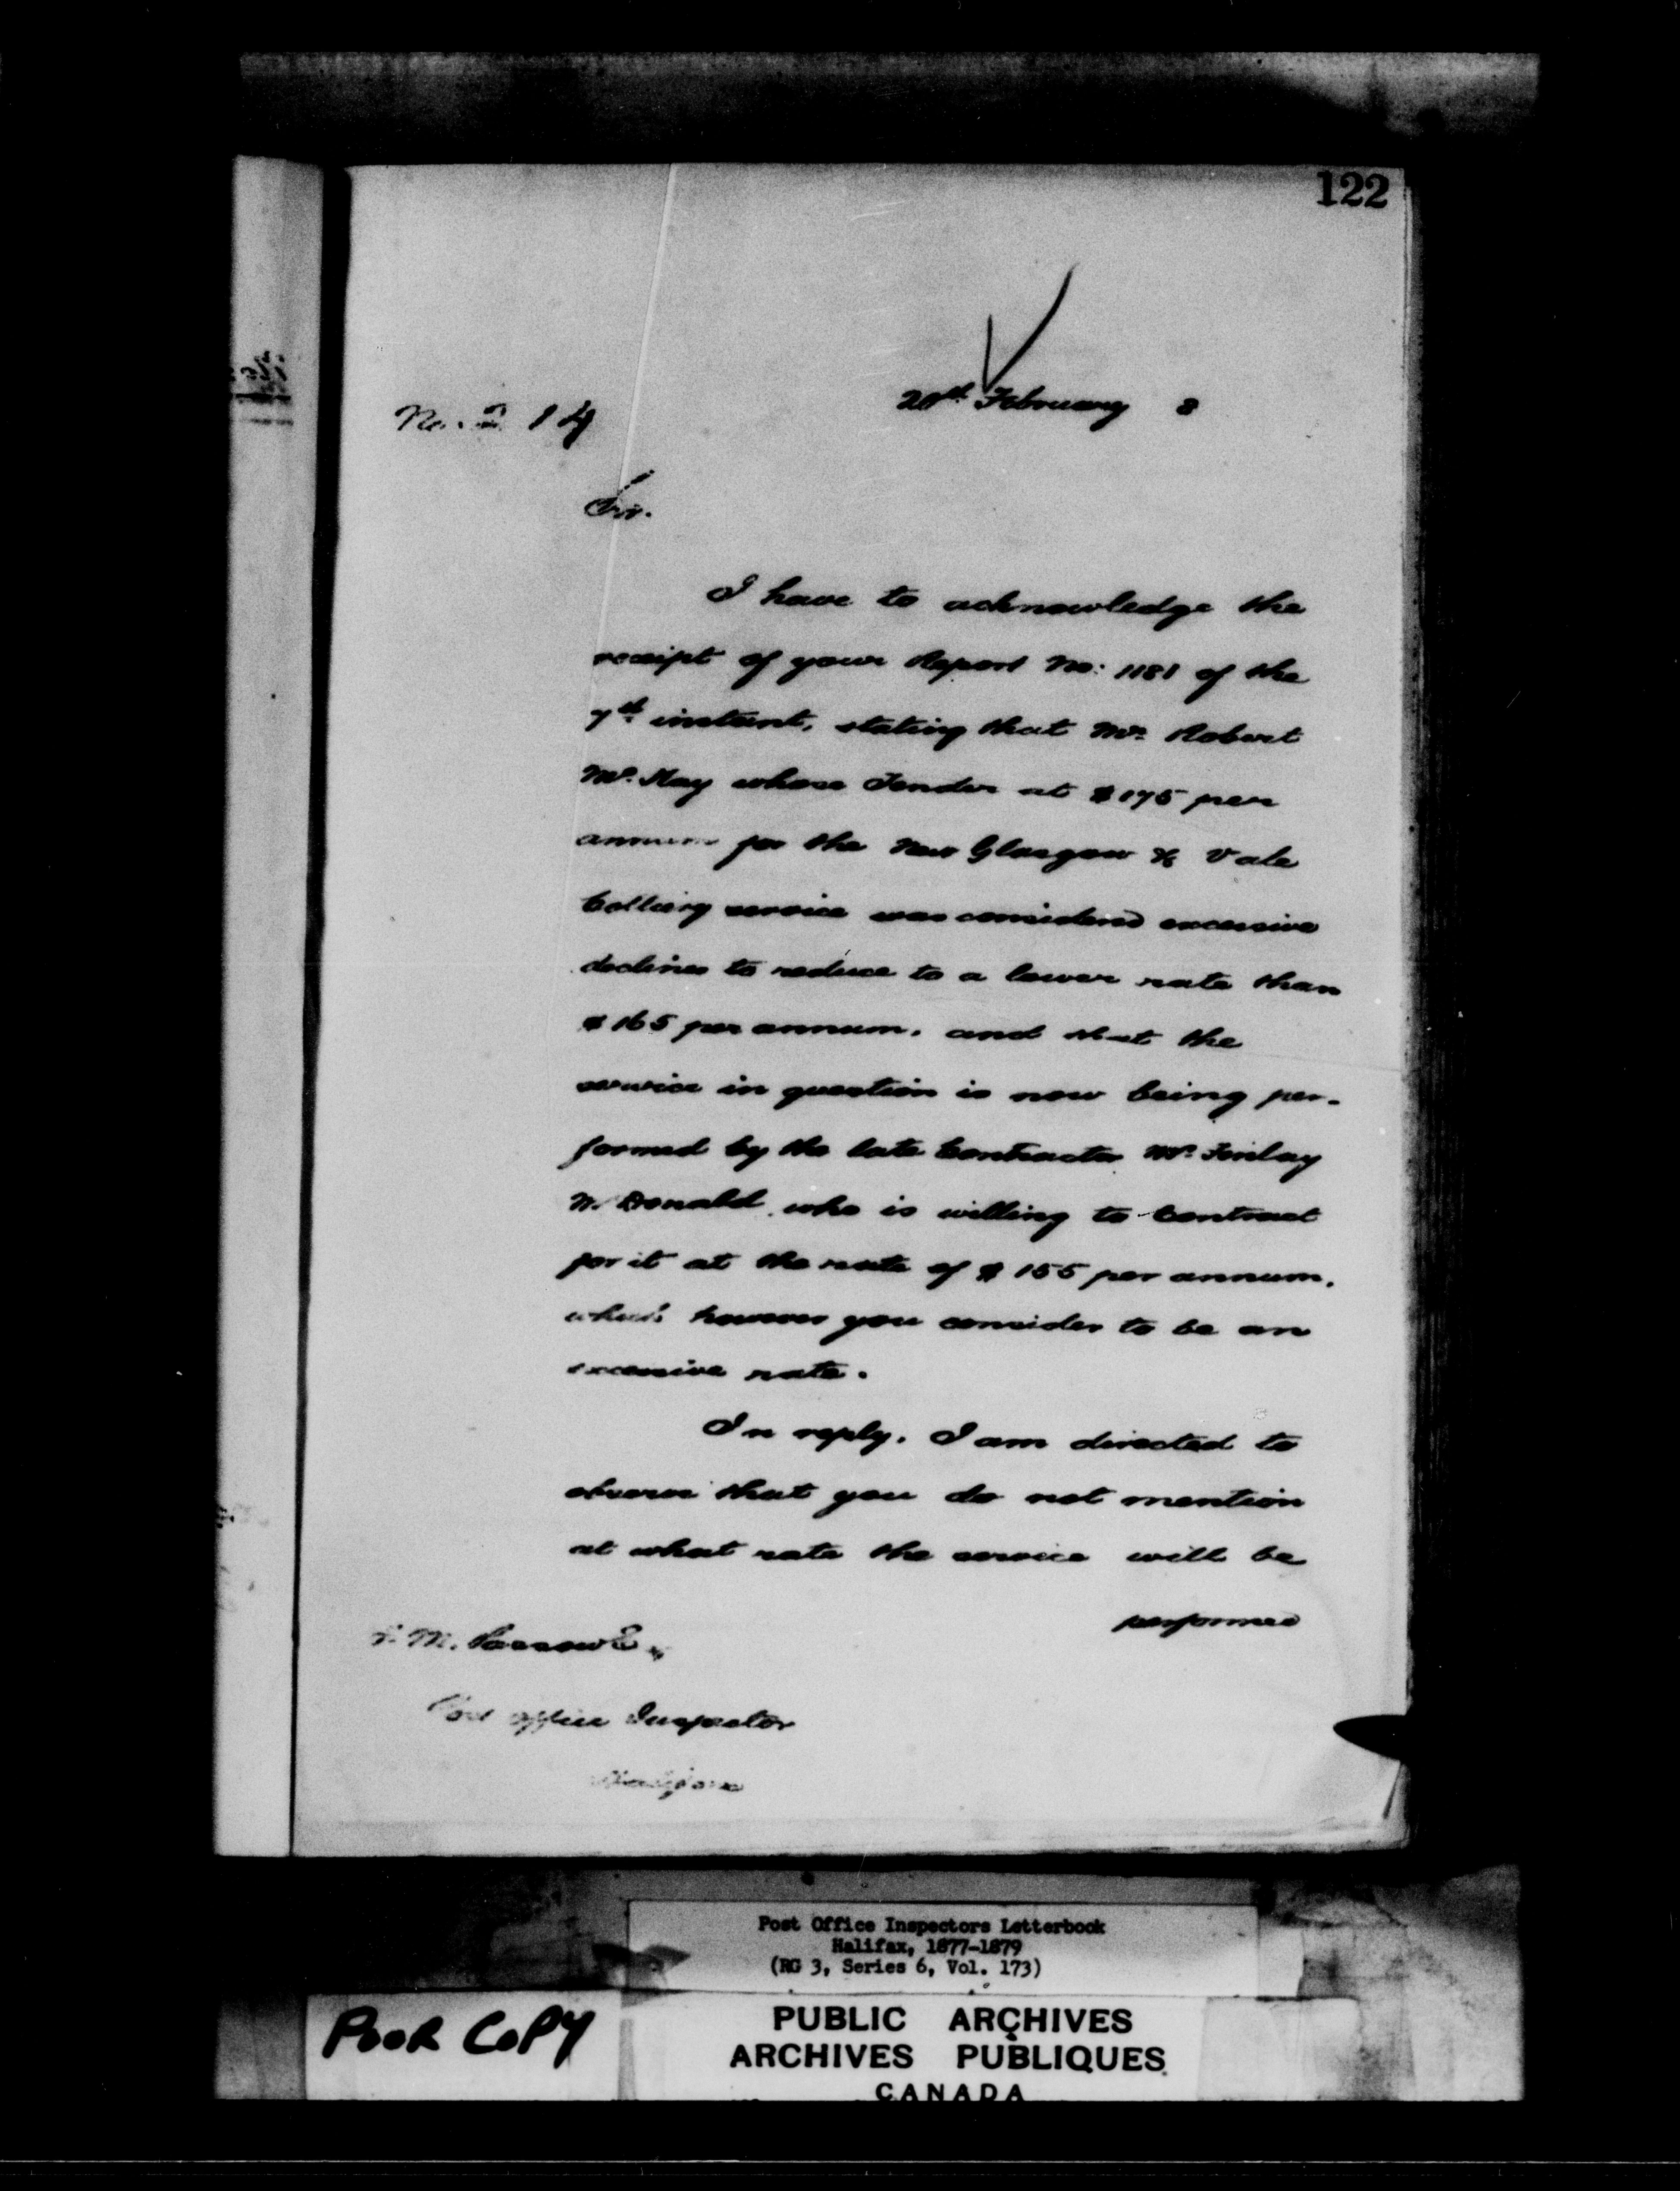 122
20th February 8
No. 214
Sir.
I have to acknowledge the
receipt of your Report No: 1181 of the
7th instant, stating that Mr. Robert
McKay whose Tender at $175 per
annum for the New Glasgow & Vale
Colliery service was considered excessive
declines to reduce to a lower rate than
$165 per annum. and that the
service in question is now being per-
formed by the late Contractor Mr. Finlay
McDonald who is willing to Contract
for it at the rate of $155 per annum.
which however you consider to be an
excessive rate.
In reply, I am directed to
observe that you do not mention
at what rate the service will be
performed
M. Passow Esq
Post Office Inspector
Post Office Inspectors Letterbook
Halifax, 1877-1879
(RG 3, Series 6, Vol. 173)
POOR COPY
PUBLIC ARCHIVES
ARCHIVES PUBLIQUES
CANADA